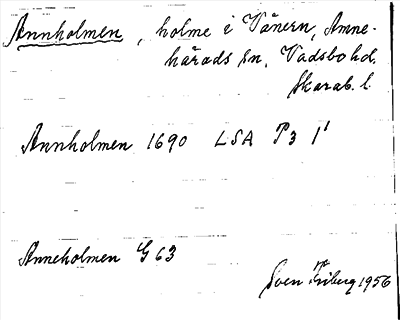 Annholmen, holme i Vänern, Amne-
härads sn, Vadsbo hd.
Skarab. l.
Annholmen 1690 LSA P3 1¹
Anneholmen G 63
Sven Friberg 1956